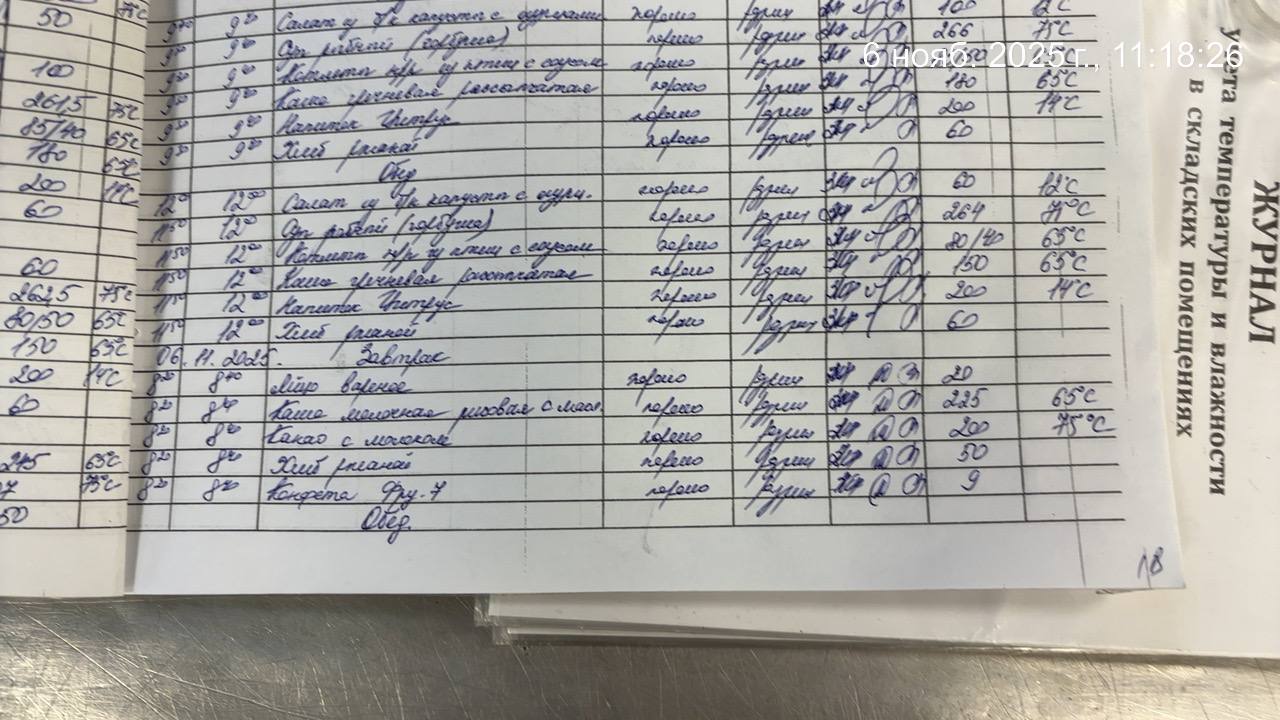 50 75°С
100
261,5 75°С
85/40 65°С
180 65°С
200 14°С
60
60
262,5 75°С
80/50 65°С
150 65°С
200 14°С
60
245 65°С
75°С
50
9 20 Салат из б/к капусты с огурцами хорошо 100 12°С
9 20 Суп рыбный (горбуша) хорошо 266 75°С
9 20 Котлеты н/р из птицы с соусом хорошо
9 20 Каша гречневая рассыпчатая хорошо 180 65°С
9 20 Напиток Цитрус хорошо 200 14°С
9 20 Хлеб ржаной хорошо 60
Обед
12 00 Салат из б/к капусты с огурц. хорошо 60 12°С
11 50 12 00 Суп рыбный (горбуша) хорошо 264 75°С
11 50 12 00 Котлеты н/р из птицы с соусом хорошо 80/40 65°С
11 50 12 00 Каша гречневая рассыпчатая хорошо 150 65°С
11 50 12 00 Напиток Цитрус хорошо 200 14°С
11 50 12 00 Хлеб ржаной хорошо 60
06.11.2025. Завтрак
8 20 8 40 Яйцо вареное хорошо 20
8 20 8 40 Каша молочная рисовая с масл. хорошо 225 65°С
8 20 8 40 Какао с молоком хорошо 200 75°С
8 20 8 40 Хлеб ржаной хорошо 50
8 20 8 40 Конфета Фру-7 хорошо 9
Обед.
18
6 нояб. 2025 г., 11:18:26
ЖУРНАЛ
учета температуры и влажности
в складских помещениях